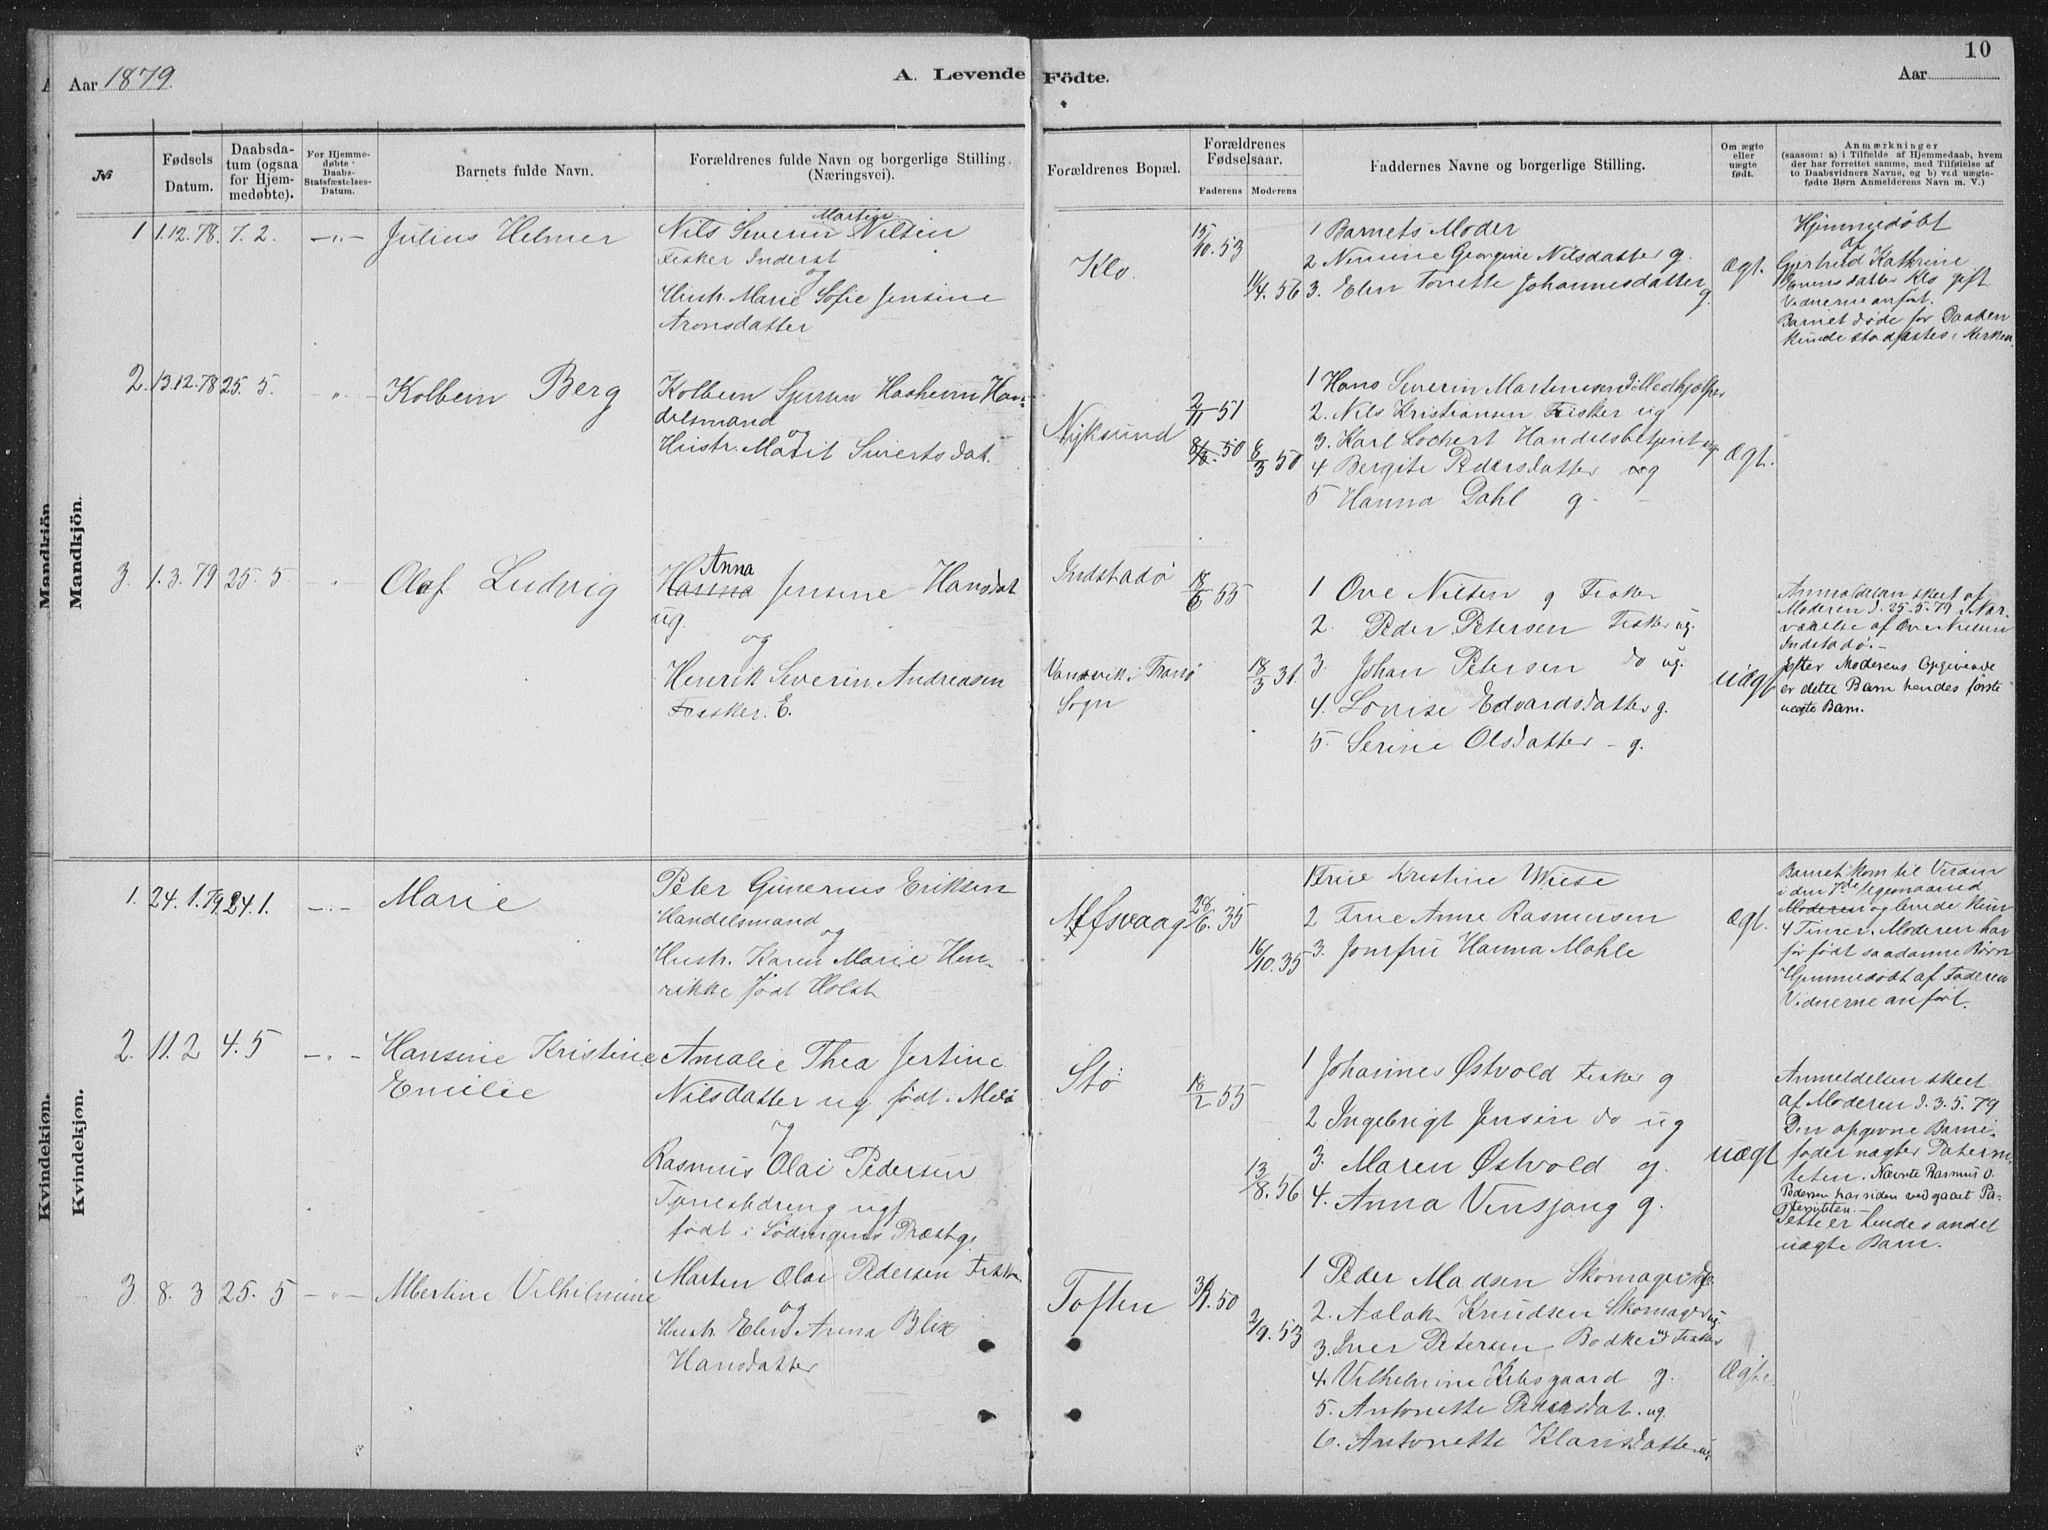 10
Aar 1879.
A. Levende Födte.
Aar
№
Fødsels Datum.
Daabsda-
tum (ogsaa
for Hjem-
medøbte).
For Hjemme-
døbte
Daabs-
Stadfæstelses-
Datum.
Barnets fulde Navn.
Forældrenes fulde Navn og borgerlige Stilling.
(Næringsvei).
Forældrenes Bopæl.
Forældrenes
Fødselsaar.
Faderens
Moderens
Faddernes Navne og borgerlige Stilling.
Om ægte
eller
uægte
født.
Anmærkninger
(saasom: a) i Tilfælde af Hjemmedaab, hvem
der har forrettet samme, med Tilføielse af
to Daabsvidners Navne, og b) ved uægte-
fødte Børn Anmelderens Navn m. V.)
Mandkjön.
Mandkjön.
1 1.12.78. 7.2. -„- Julius Helmer
Martin
Nils Severin Nilsen
Fisker Inderst
og
Hustr. Marie Sofie Jensine
Aronsdatter
Klo
15/10.53
11/4.56
1 Barnets Moder
2 Nimine Georgine Nilsdatter g.
3. Elen Tonette Johannesdatter
g.
Ægt.
Hjemmedøbt
af
Gjertrud Kathrine
Evensdatter Klo gift
Vidnerne anført.
Barnet døde før Daaben
kunde stadfæstes i Kirken
2. 13.12.78 25.5. „ Kolbein Berg
Kolbein Hasheim Han-
delsmand
og
Hustr. Marit Sivertsdat.
Nyksund
2/11 51
8/3.50
8/3 50
1 Hans Severin Martinusen Medhjælper
2. Nils Kristiansen Fisker ug
3. Karl Lochert Handelsbetjent ug.
4 Bergite Pedersdatter ug
5 Hanna Dahl g.
Ægt.
3. 1.3.79 25.5 „ Olaf Ludvig
Anna
Hanna Jensine Hansdat
ug.
og
Henrik Severin Andreasen
Fisker. E.
Indstadø
Vandvik i Tranø
Sogn
18/6 55
18/3 31
1 Ove Nilsen g Fisker
2. Peder Petersen Fisker ug.
3. Johan Petersen do ug.
4. Lovise Edvardsdatter g.
5. Serine Olsdatter - g.
uægt
Anmeldelsen skeet af
Moderen d. 25.5.79 i Nær-
værelse af Ove Nielsen
Indstadø.-
Efter Moderens Opgivende
er dette Barn hendes første
uægte Barn.
Kvindekjön.
Kvindekjön.
1. 24.1.79 24.1. -„- Marie
Peter Gunerius Eriksen
Handelsmand
og
Hustr. Karen Marie Hen-
rikke født Holst
Alfsvaag
28/6.35
16/10.35
1 Frue Kristine Wiese
2 Frue Anne Rasmusen
3. Jomfru Hanna Mahle
Ægt.
Barnet kom til Verden
i den 7de Ugemaaned
Moderen og levede kun
4 Timer. Moderen har
før født saadanne Børn
Hjemmedøbt af Faderen
Vidnerne anført.
2. 11.2 4.5 -„- Hansine Kristine
Emilie
Amalie Thea Jertine
Nilsdatter ug født i Melø
og
Rasmus Olai Pedersen
Tjenestdreng ugt
født i Lødingens Præstg.
Stø
18/2 55
13/8.56
1 Johannes Østvold Fisker g
2 Ingebrigt Jensen do ug
3. Maren Østvold g.
4. Anna Vinsjang g.
uægt
Anmeldelsen skeet
af Moderen d. 3.5.79
Den opgivne Barne-
fader nægter Paterni-
teten. Nævnte Rasmus O.
Pedersen har siden vedgaaet Pa-
terniteten.-
Dette er hendes andet
uægte Barn.
3 8.3 25.5 -„- Albertine Vilhelmine
Marten Olai Pedersen Fisker
og
Hustr. Elen Anna Blix
Hansdatter
Toften
3/1.50
2/9.53
1 Peder Madsen Skomager g.
2. Aslak Knudsen Skomager ug
3. Iver Petersen Bødker ug Fisker
4. Vilhelmine Kibsgaard g.
5. Antonette Pedersdat. ug.
6. Antonette Klausdatter ug.
Ægte